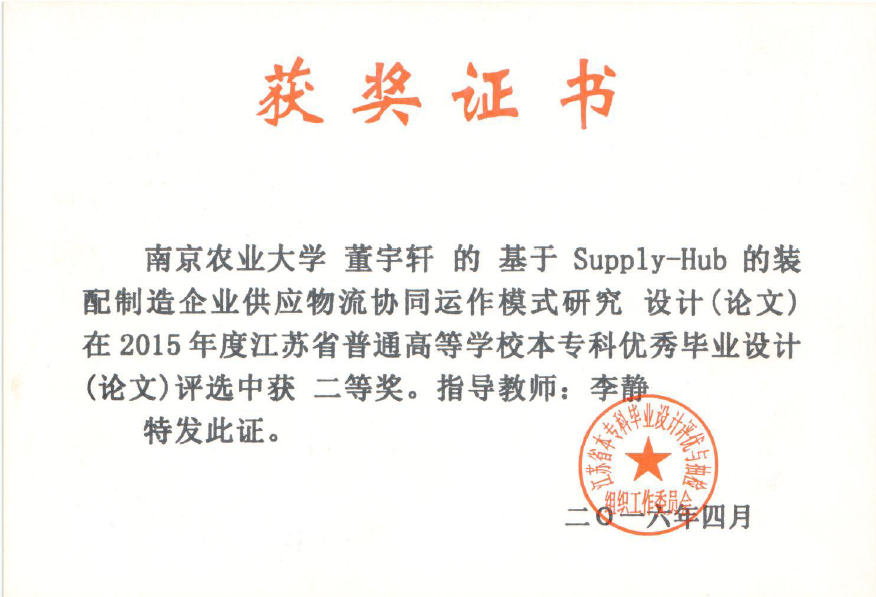 获奖证书
南京农业大学 董宇轩 的 基于 Supply-Hub 的装
配制造企业供应物流协同运作模式研究 设计(论文)
在2015年度江苏省普通高等学校本专科优秀毕业设计
(论文)评选中获 二等奖。指导教师：李静
特发此证。
江苏省本专科毕业设计评优与抽检
组织工作委员会
二〇一六年四月